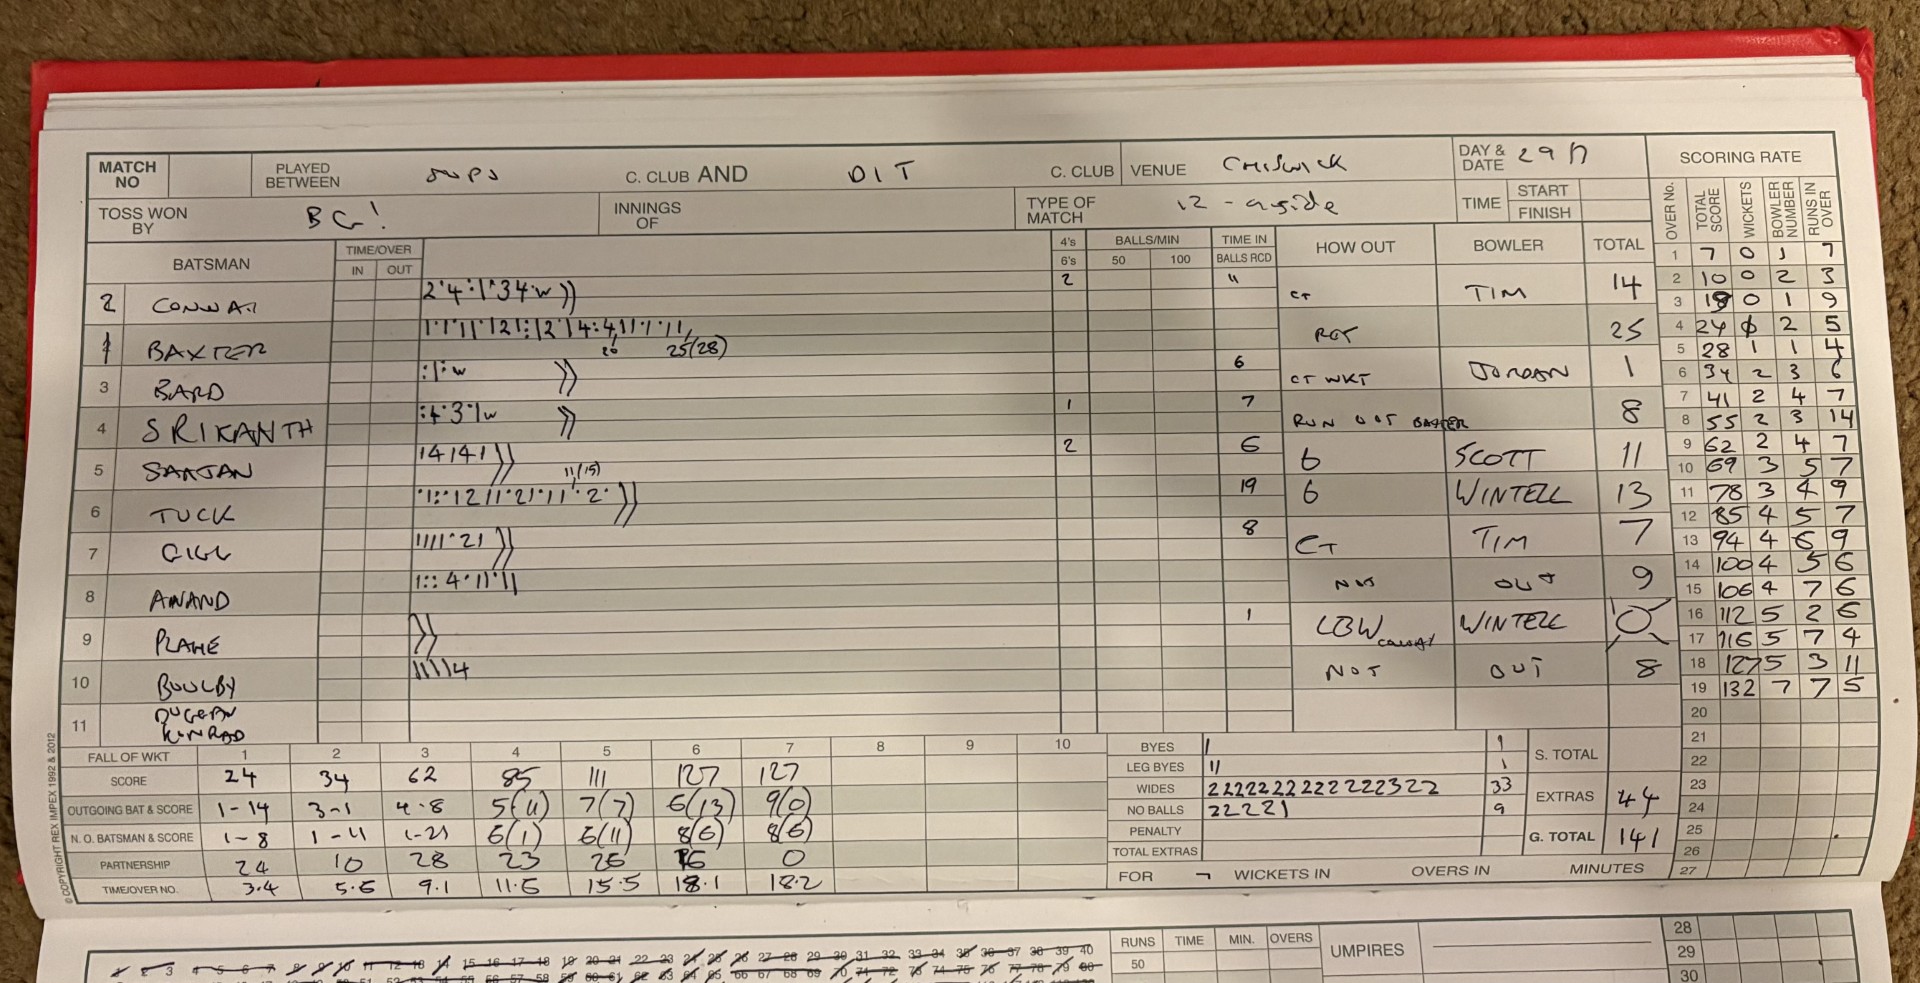 MATCH NO PLAYED BETWEEN C. CLUB AND DIT C. CLUB VENUE CHISWICK DAY & DATE 29/7 SCORING RATE
TOSS WON BY BG! INNINGS OF TYPE OF MATCH 12 - aside TIME START
FINISH
OVER No. TOTAL SCORE WICKETS BOWLER NUMBER RUNS IN OVER
BATSMAN TIME/OVER IN OUT 4's 6's BALLS/MIN 50 100 TIME IN BALLS RCD HOW OUT BOWLER TOTAL
2 CONWAI 2 11 CT TIM 14
BAXTER 20 25(28) RET 25
3 BARD 6 CT WKT JORDAN 1
4 SRIKANTH 1 7 RUN OUT BAXTER 8
5 SAAJAN 14141 2 6 b SCOTT 11
6 TUCK 11(15) 19 b WINTELL 13
7 GILL 8 CT TIM 7
8 ANAND NOT OUT 9
9 PLANE 1 LBW WINTELL O
10 BOULBY NOT OUT 8
11 DUGGAN
KONRAD
1 7 0 1 7
2 10 0 2 3
3 19 0 1 9
4 24 0 2 5
5 28 1 1 4
6 34 2 3 6
7 41 2 4 7
8 55 2 3 14
9 62 2 4 7
10 69 3 5 7
11 78 3 4 9
12 85 4 5 7
13 94 4 6 9
14 100 4 5 6
15 106 4 7 6
16 112 5 2 6
17 116 5 7 4
18 127 5 3 11
19 132 7 7 5
20
21
22
23
24
25
26
27
FALL OF WKT 1 2 3 4 5 6 7 8 9 10
SCORE 24 34 62 85 111 127 127
OUTGOING BAT & SCORE 1-14 3-1 4-8 5(11) 7(7) 6(13) 9(0)
N. O. BATSMAN & SCORE 1-8 1-11 1-21 6(1) 6(11) 8(6) 8(6)
PARTNERSHIP 24 10 28 23 26 16 0
TIME/OVER NO. 3.4 5.6 9.1 11.6 15.5 18.1 18.2
BYES 1 1 S. TOTAL
LEG BYES 11 1
WIDES 222222222222322 33 EXTRAS 44
NO BALLS 22221 9
PENALTY G. TOTAL 141
TOTAL EXTRAS
FOR 7 WICKETS IN OVERS IN MINUTES
© COPYRIGHT REX IMPEX 1992 & 2012
1 2 3 4 5 6 7 8 9 10 11 12 13 14 15 16 17 18 19 20 21 22 23 24 25 26 27 28 29 30 31 32 33 34 35 36 37 38 39 40
RUNS TIME MIN. OVERS UMPIRES
50
28
29
30